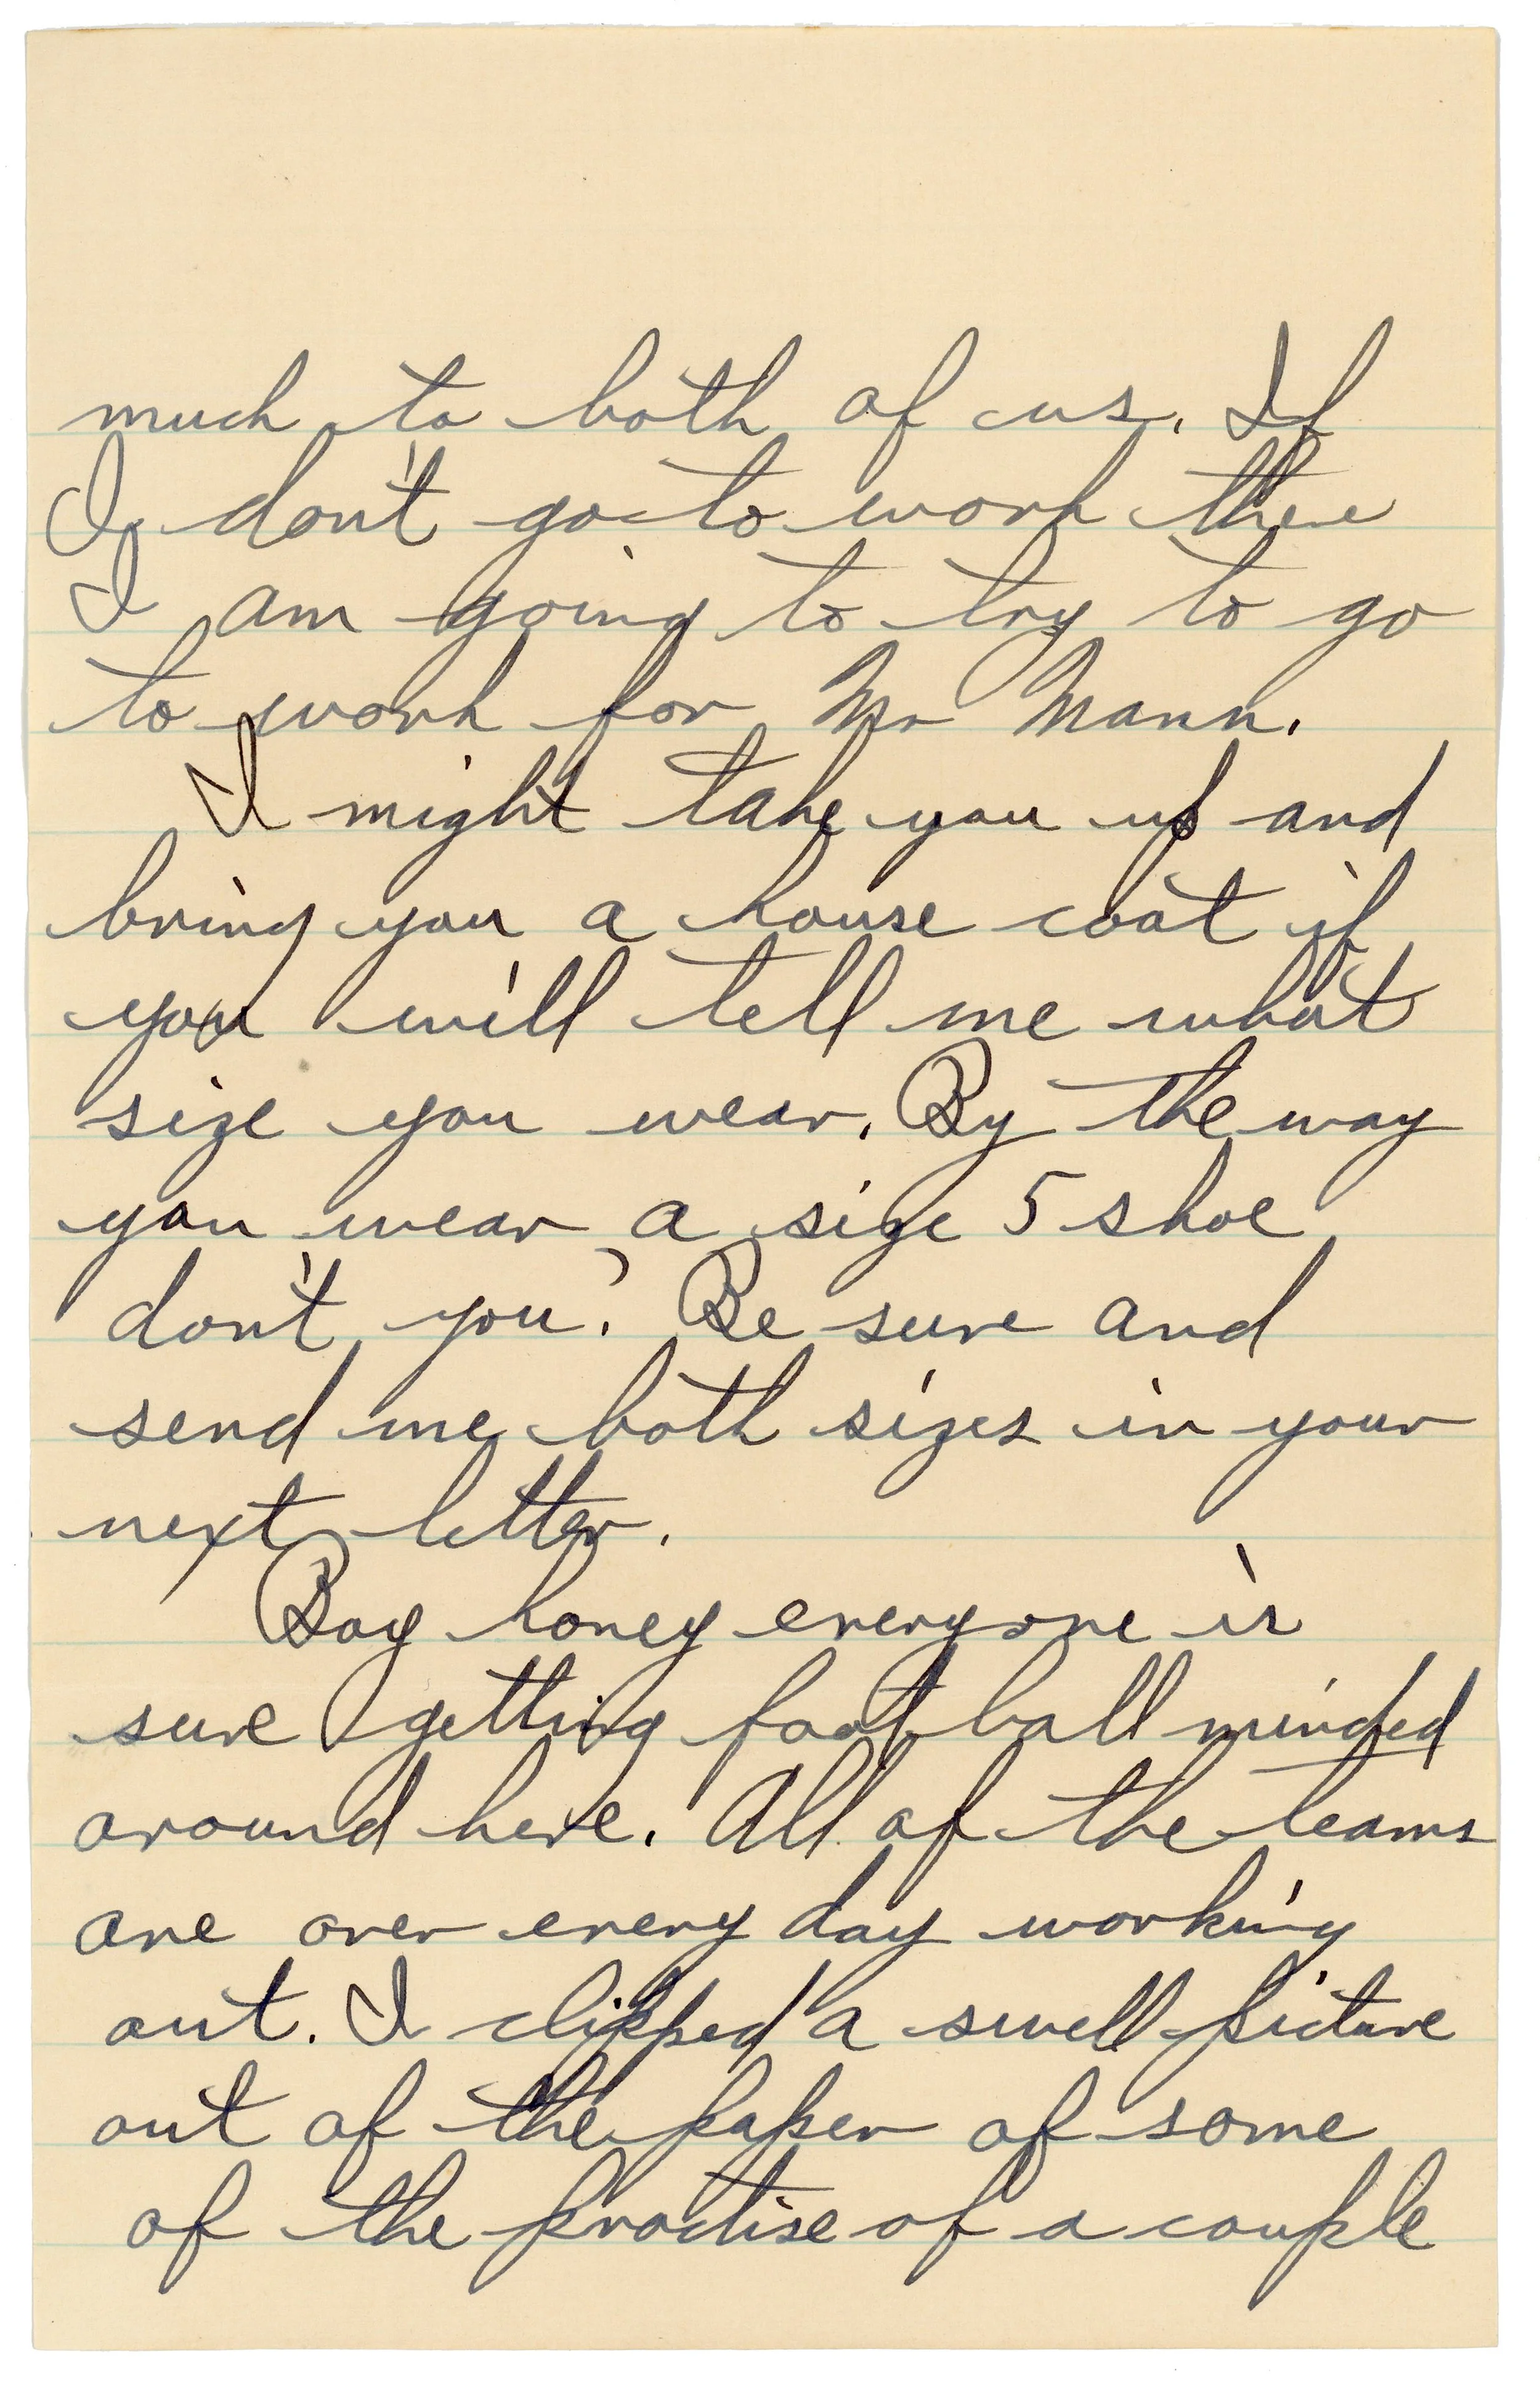 much to both of us. If
I don't go to work there
I am going to try to go
to work for Mr Mann.
I might take you up and
bring you a house coat if
you will tell me what
size you wear. By the way
you wear a size 5 shoe
don't you? Be sure and
send me both sizes in your
next letter.
Boy honey everyone is
sure getting foot ball minded
around here. All of the teams
are over every day working
out. I clipped a swell picture
out of the paper of some
of the practise of a couple